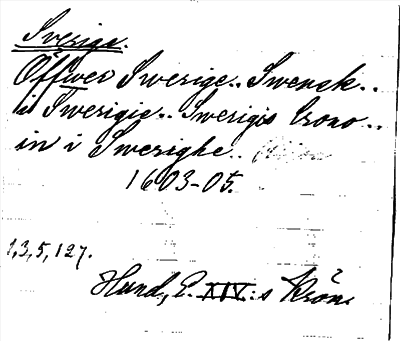 Sverige.
Öffwer Swerige.. Swensk..
til Swerigie.. Swerigis Crono..
in i Swerighe..
1603-05.
1,3,5,127.
Hund, E. XIV:s Krön.